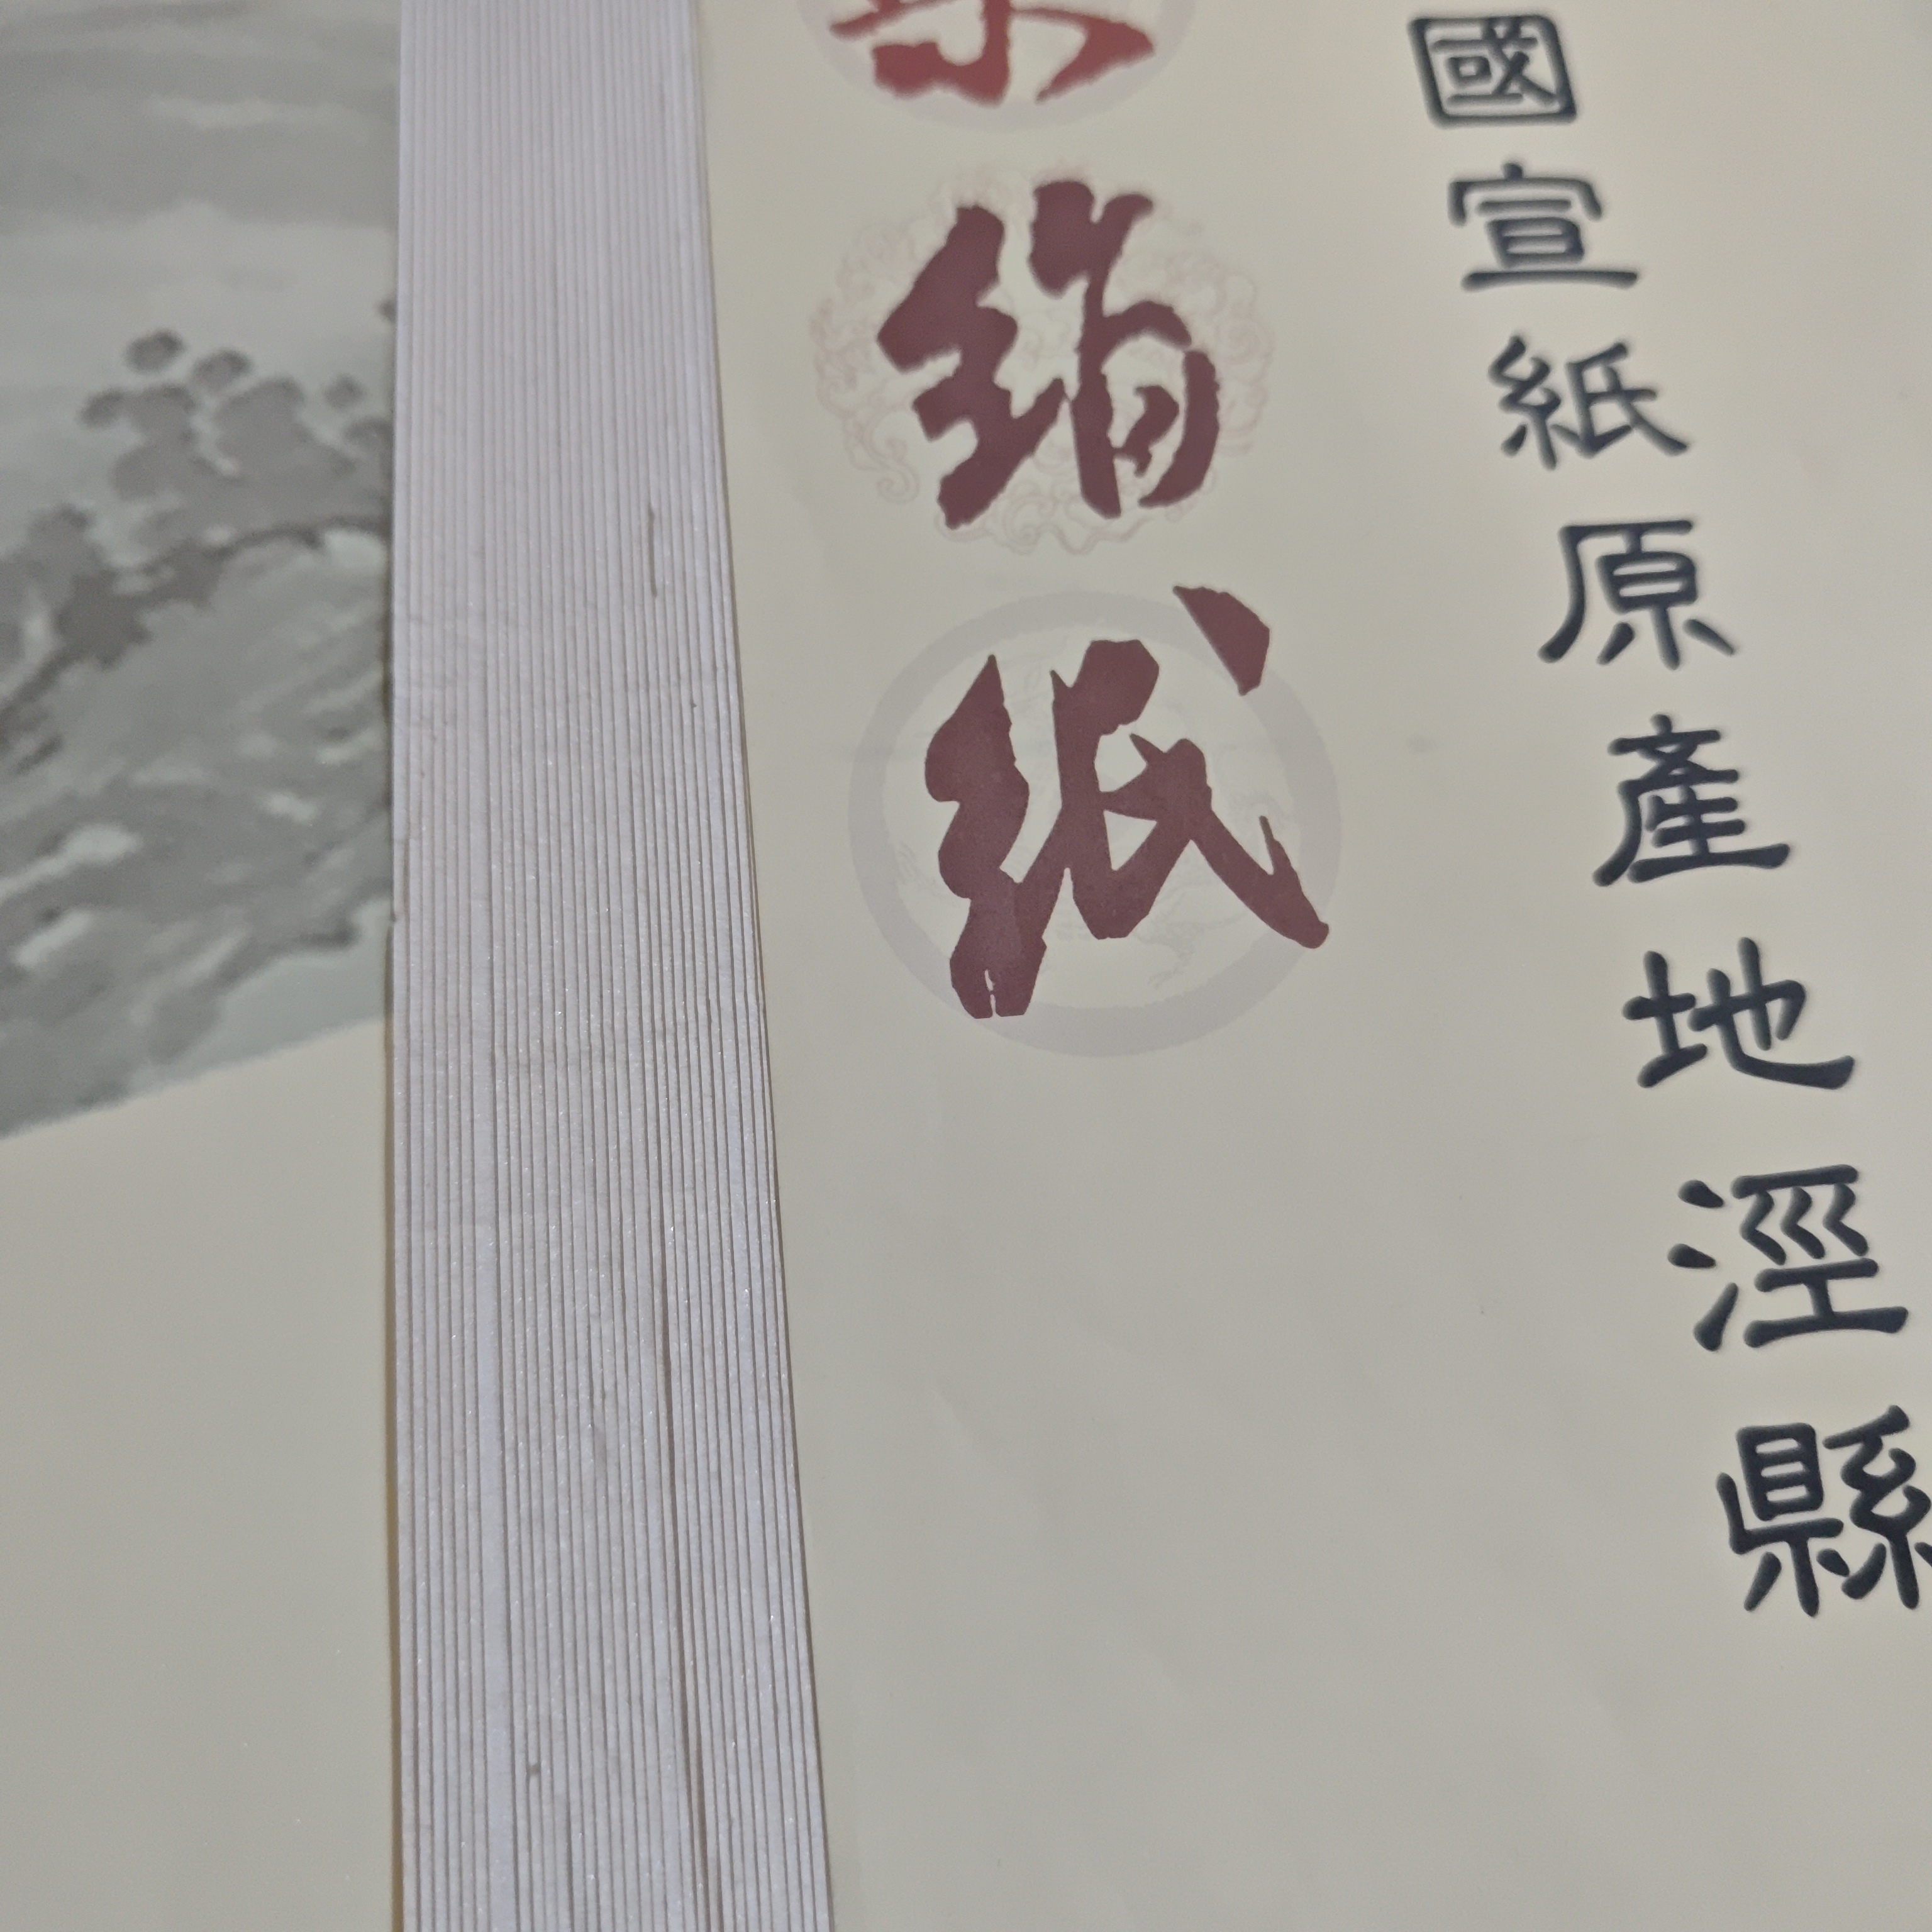 國宣紙原產地涇縣
絹紙